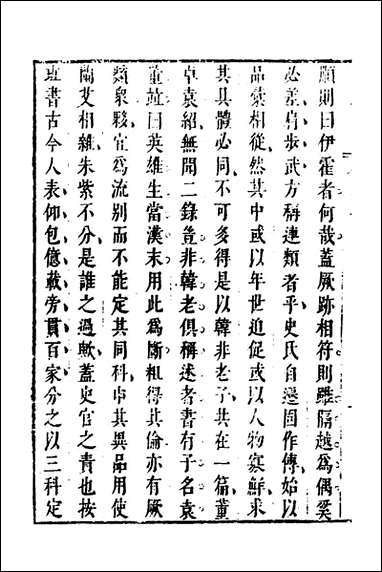 顧則曰伊霍者何哉蓋厥跡相符則雖隔越爲偶奚
必差肩步武方稱連類者乎史氏自遷固作傳始以
品彙相從然其中或以年世迫促或以人物寡鮮求
其具體必同不可多得是以韓非老子共在一篇董
卓袁紹無聞二錄豈非韓老俱稱述者書有子名袁
董竝曰英雄生當漢末用此爲斷粗得其倫亦有厥
類衆夥宜爲流别而不能定其同科申其異品用使
蘭艾相雜朱紫不分是誰之過歟蓋史官之責也按
班書古今人表仰包億載旁貫百家分之以三科定